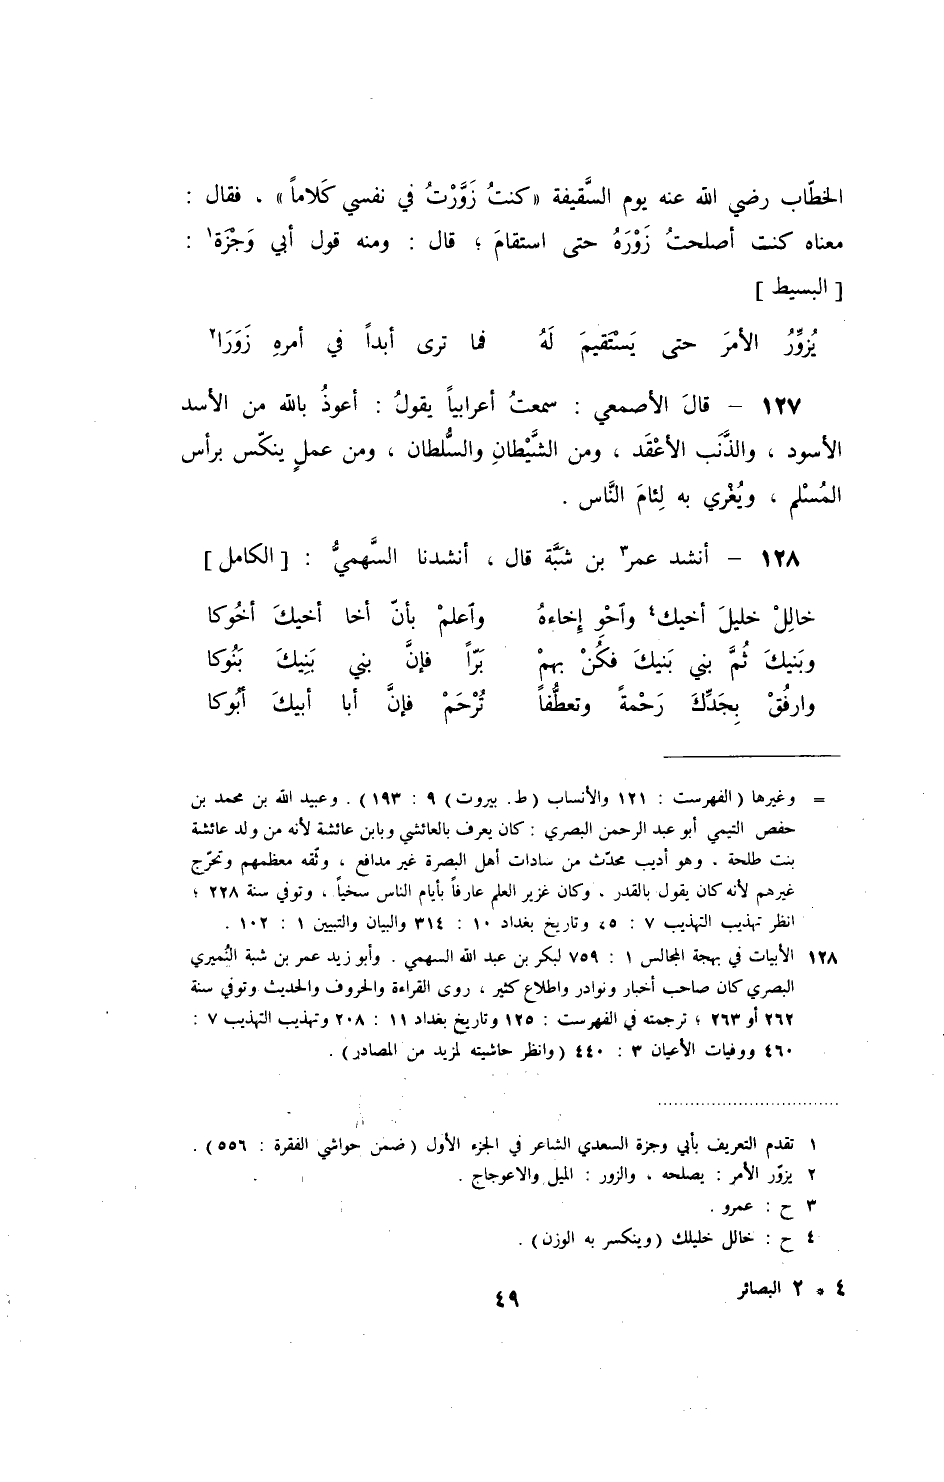 الخطّاب رضي الله عنه يوم السَّقيفة «كنتُ زَوَّرْتُ في نفسي كَلاماً» ، فقال :
معناه كنت أصلحتُ زَوْرَهُ حتى استقامَ ؛ قال : ومنه قول أبي وَجْزَة١ :
[ البسيط ]
يُزوِّرُ الأمرَ حتى يَسْتَقيمَ لَهُ فما ترى أبداً في أمرهِ زَوَرَا٢
١٢٧ – قالَ الأصمعي : سمعتُ أعرابياً يقولُ : أعوذُ بالله من الأسد
الأسود ، والذَّنَب الأعْقَد ، ومن الشَّيْطانِ والسُّلطان ، ومن عملٍ ينكّس برأس
المُسْلم ، ويُغْري به لِئامَ النَّاس .
١٢٨ – أنشد عمر٣ بن شَبَّة قال ، أنشدنا السَّهميُّ : [ الكامل ]
خالِلْ خليلَ أخيك٤ وٱحْوِ إخاءهُ وٱعلمْ بأنّ أخا أخيكَ أخُوكا
وبَنيكَ ثُمَّ بني بَنيكَ فكُنْ بهمْ بَرّاً فإنَّ بني بَنِيكَ بَنُوكا
وارفُقْ بِجَدِّكَ رَحْمةً وتعطُّفاً تُرْحَمْ فإنَّ أبا أبيكَ أبُوكا
= وغيرها (الفهرست : ١٢١ والأنساب (ط. بيروت) ٩ : ١٩٣) . وعبيد الله بن محمد بن
حفص التيمي أبو عبد الرحمن البصري : كان يعرف بالعائشي وبابن عائشة لأنه من ولد عائشة
بنت طلحة . وهو أديب محدّث من سادات أهل البصرة غير مدافع ، وثّقه معظمهم وتحرّج
غيرهم لأنه كان يقول بالقدر . وكان غزير العلم عارفاً بأيام الناس سخياً ، وتوفي سنة ٢٢٨ ؛
انظر تهذيب التهذيب ٧ : ٤٥ وتاريخ بغداد ١٠ : ٣١٤ والبيان والتبيين ١ : ١٠٢ .
١٢٨ الأبيات في بهجة المجالس ١ : ٧٥٩ لبكر بن عبد الله السهمي . وأبو زيد عمر بن شبة النُميري
البصري كان صاحب أخبار ونوادر واطلاع كثير ، روى القراءة والحروف والحديث وتوفي سنة
٢٦٢ أو ٢٦٣ ؛ ترجمته في الفهرست : ١٢٥ وتاريخ بغداد ١١ : ٢٠٨ وتهذيب التهذيب ٧ :
٤٦٠ ووفيات الأعيان ٣ : ٤٤٠ (وانظر حاشيته لمزيد من المصادر) .
١ تقدم التعريف بأبي وجزة السعدي الشاعر في الجزء الأول (ضمن حواشي الفقرة : ٥٥٦) .
٢ يزوّر الأمر : يصلحه ، والزور : الميل والاعوجاج .
٣ ح : عمرو .
٤ ح : خالل خليلك (وينكسر به الوزن) .
٤ * ٢ البصائر
٤٩